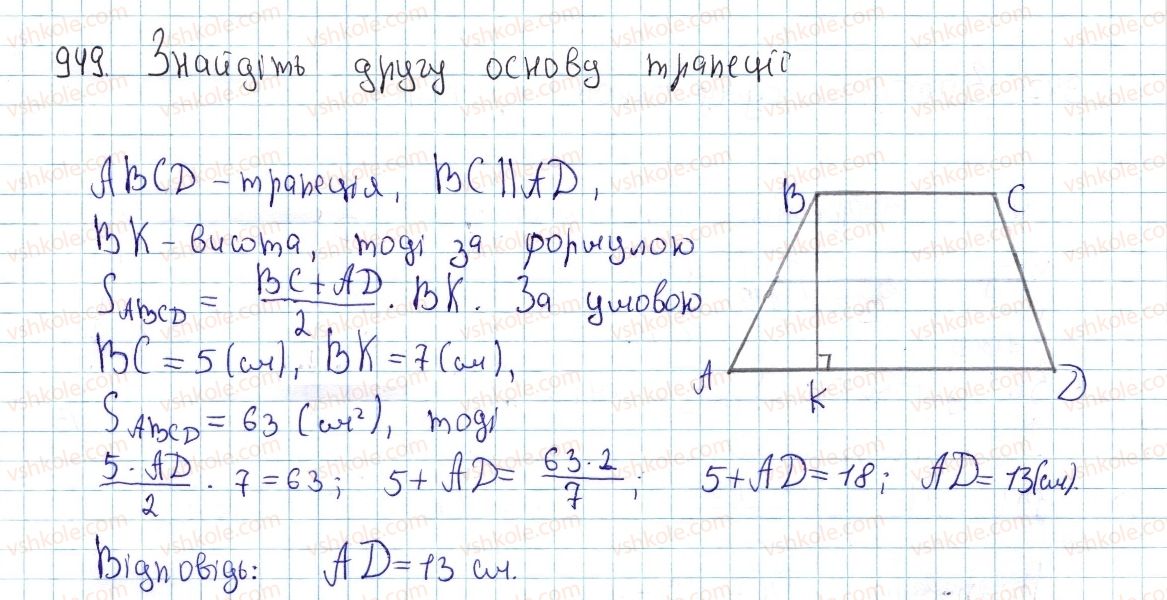 949. Знайдіть другу основу трапеції
ABCD – трапеція, BC || AD,
BK – висота, тоді за формулою
S_ABCD = (BC + AD)/2 · BK. За умовою
BC = 5 (см), BK = 7 (см),
S_ABCD = 63 (см²), тоді
(5 · AD)/2 · 7 = 63; 5 + AD = (63 · 2)/7; 5 + AD = 18; AD = 13(см).
Відповідь: AD = 13 см.
B C
A K D